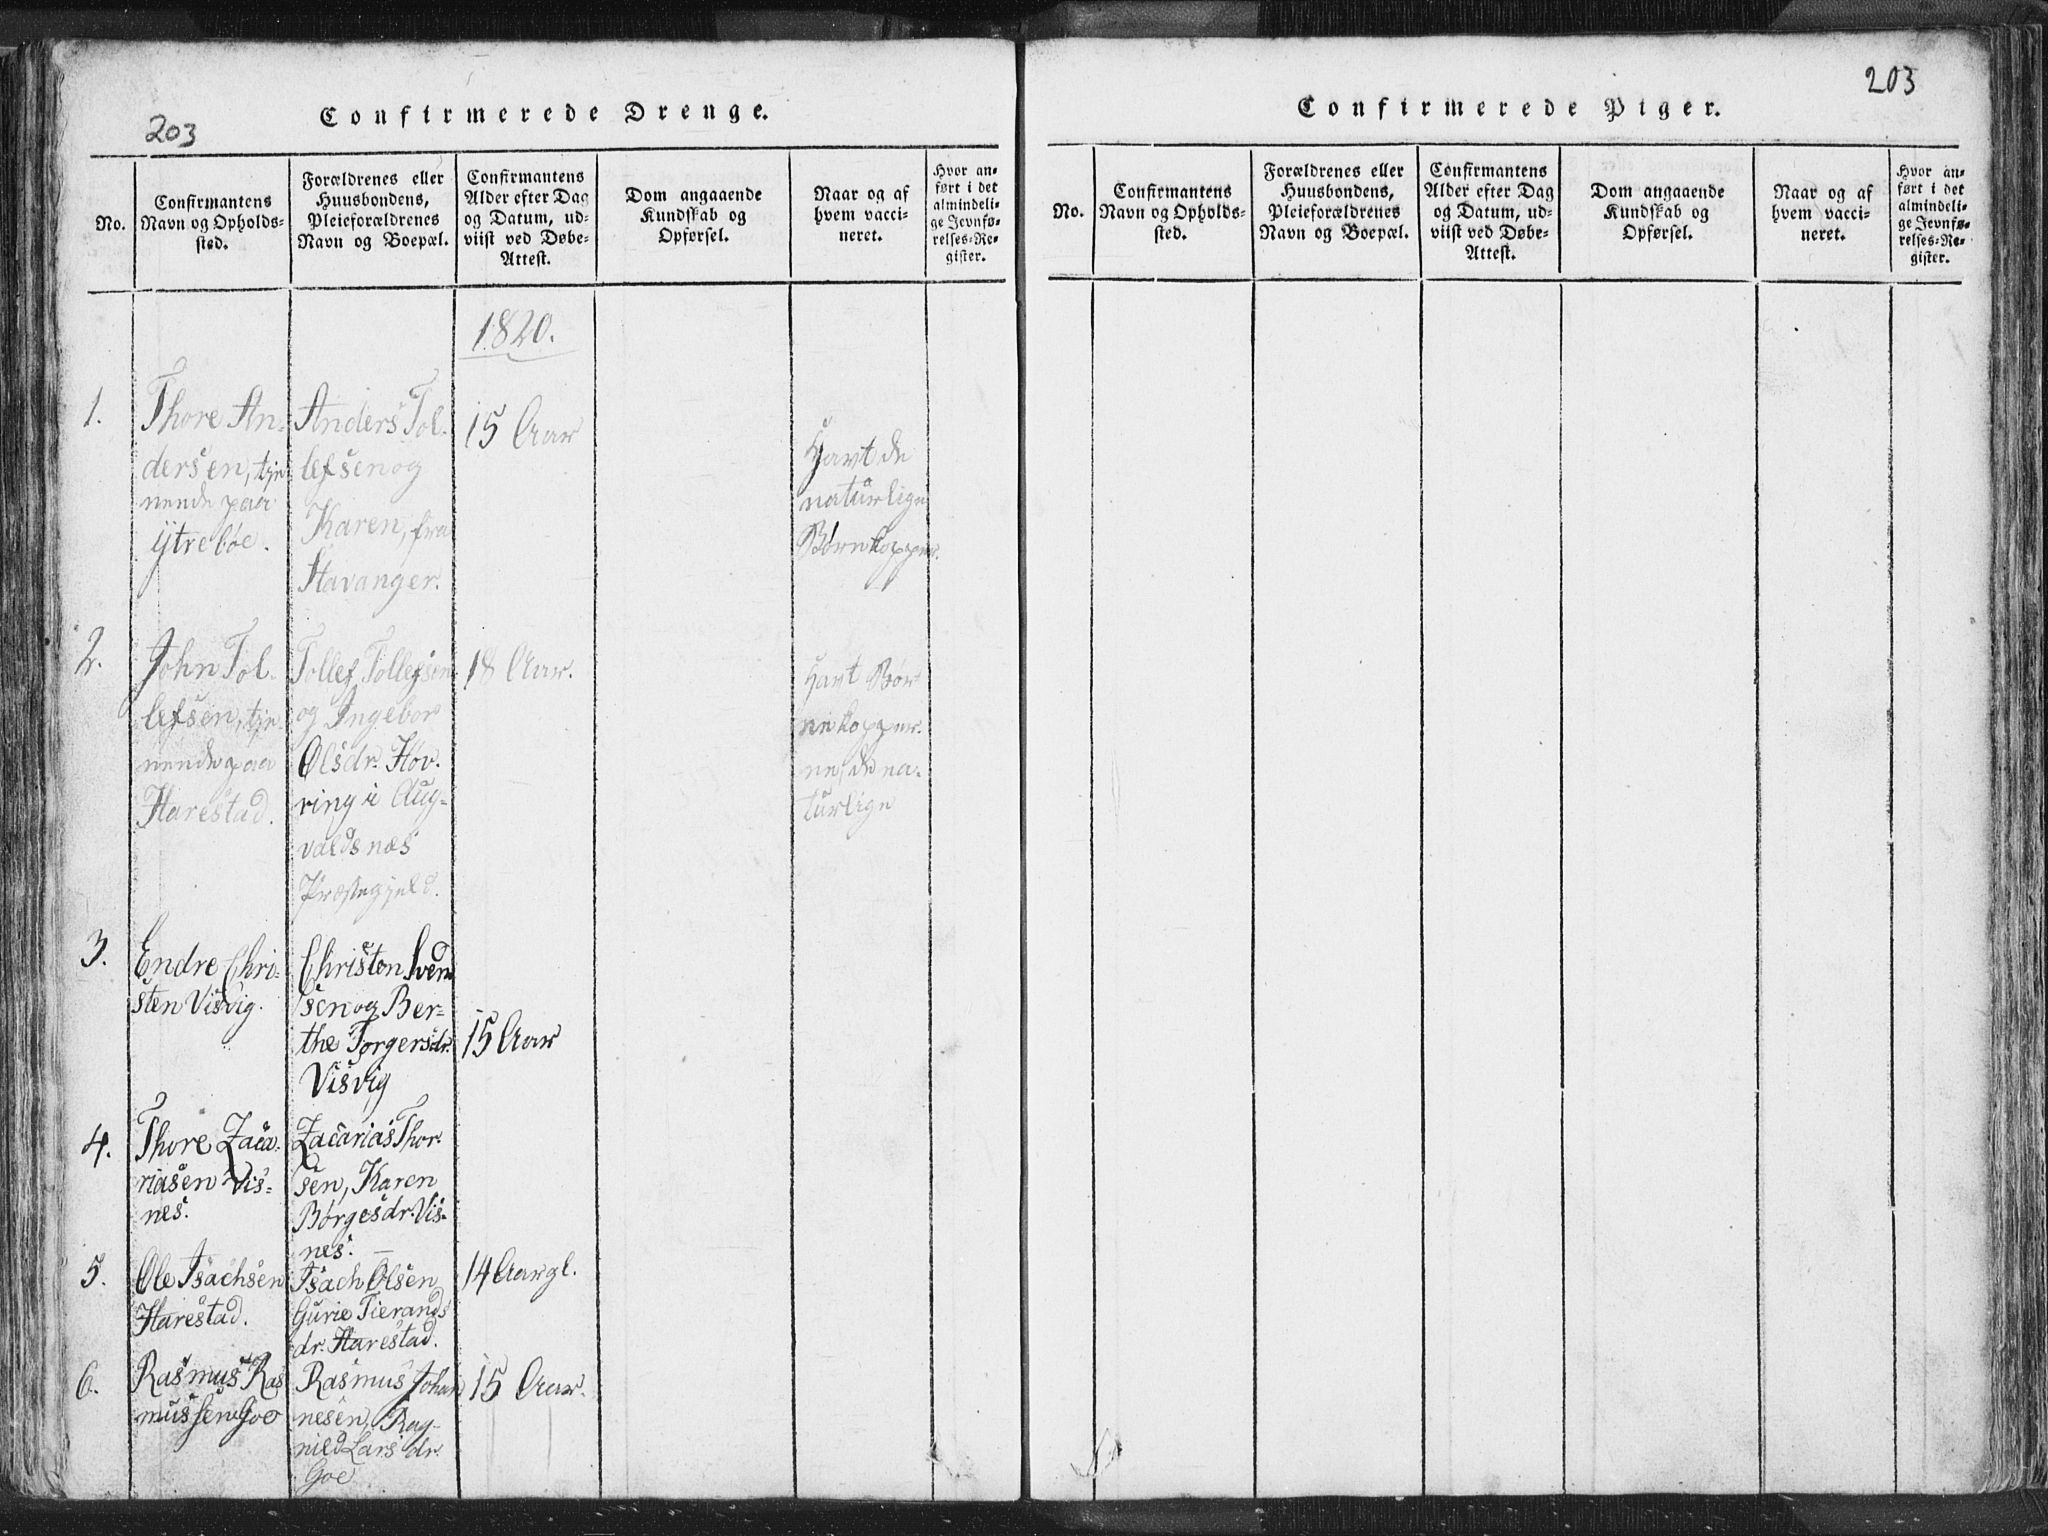 203
Confirmerede Drenge.
No.
Confirmantens
Navn og Opholds-
sted.
Forældrenes eller
Huusbondens,
Pleieforældrenes
Navn og Boepæl.
Confirmantens
Alder efter Dag
og Datum, ud-
viist ved Døbe-
Attest.
Dom angaaende
Kundskab og
Opførsel.
Naar og af
hvem vacci-
neret.
Hvor an-
ført i det
almindeli-
ge Jevnfø-
relses-Re-
gister.
1820.
1.
Thore An-
dersen, tje
nende paa
Ytrebøe.
Anders Tol-
lefsen og
Karen, fra
Stavanger.
15 Aar
Havt de
naturlige
Børnekopper.
2.
John Tol-
lefsen, tje
nende paa
Harestad.
Tollef Tollefsen
og Ingebor
Olsdr. Høv-
ring i Aug-
valdsnæs
Præstegjeld.
18 Aar.
Havt Bør-
nekopper-
ne, de na-
turlige
3.
Endre Chri-
sten Visvig.
Christen Svend
sen og Ber-
the Torgersdr.
Visvig
15 Aar
4.
Thore Zaca-
riasen Vis-
nes.
Zacarias Thor-
sen, Karen
Børgesdr. Vis-
nes.
5.
Ole Isachsen
Harestad.
Isach Olsen
Gurie Tierands
dr. Harestad.
14 Aar gl.
6.
Rasmus Ras
mussen Goe
Rasmus Johan
nesen, Rag-
nild Lars dr.
Goe
15 Aar.
203
Confirmerede Piger.
No.
Confirmantens
Navn og Opholds-
sted.
Forældrenes eller
Huusbondens,
Pleieforældrenes
Navn og Boepæl.
Confirmantens
Alder efter Dag
og Datum, ud-
viist ved Døbe-
Attest.
Dom angaaende
Kundskab og
Opførsel.
Naar og af
hvem vacci-
neret.
Hvor an-
ført i det
almindeli-
ge Jevnfø-
relses-Re-
gister.